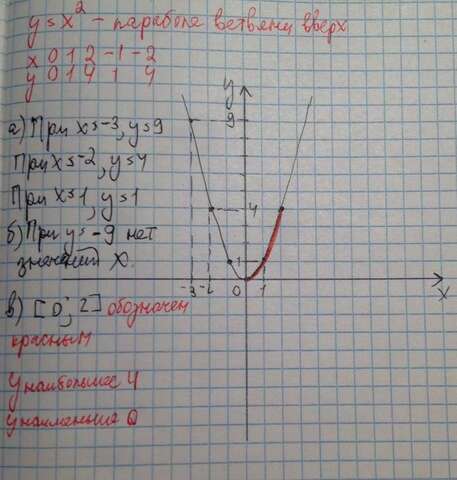 y = x² - парабола ветвями вверх
x 0 1 2 -1 -2
y 0 1 4 1 4
а) При x=-3, y=9
При x=-2, y=4
При x=1, y=1
б) При y=-9 нет
значений x.
в) [0; 2] обозначен
красным
y наибольшее 4
y наименьшее 0
y
9
4
1
-3 -2 0 1
x